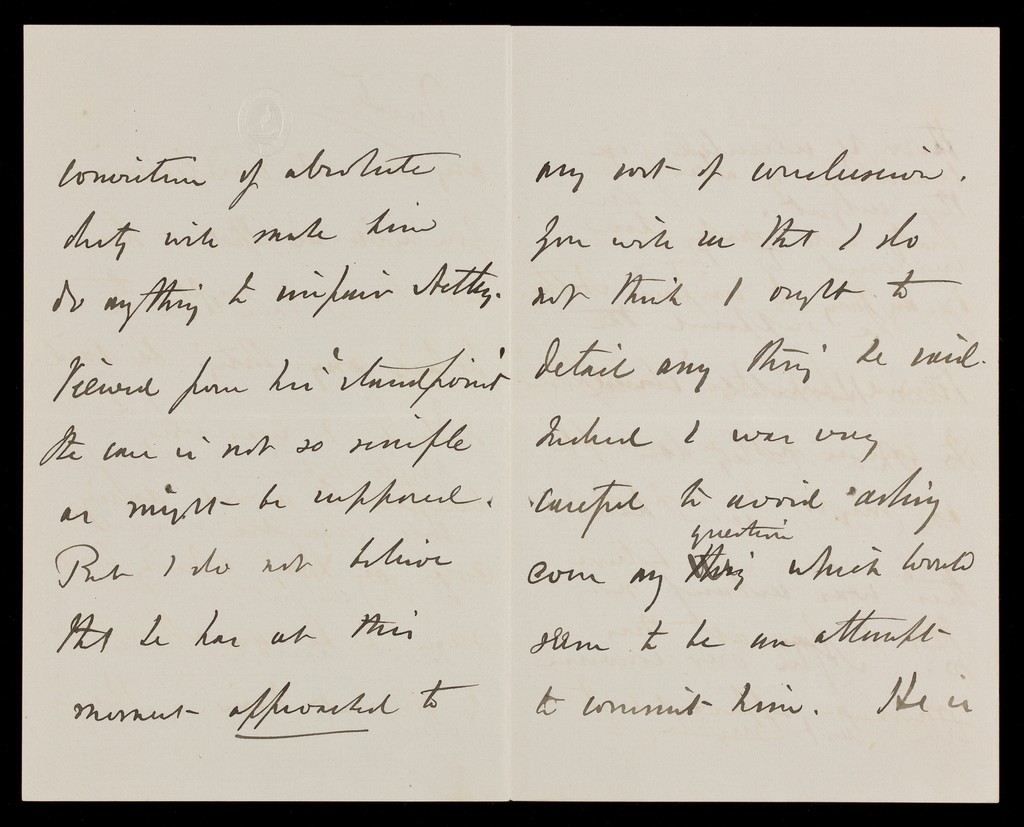 conviction of absolute
duty will make him
do anything to impair
Viewed from his standpoint
the case is not so simple
as might be supposed.
But I do not believe
that he has at this
moment approached to
any sort of conclusion.
You will see that I do
not think I ought to
detail any thing he said.
Indeed I was very
careful to avoid asking
question
even any thing which would
seem to be an attempt
to commit him. He is